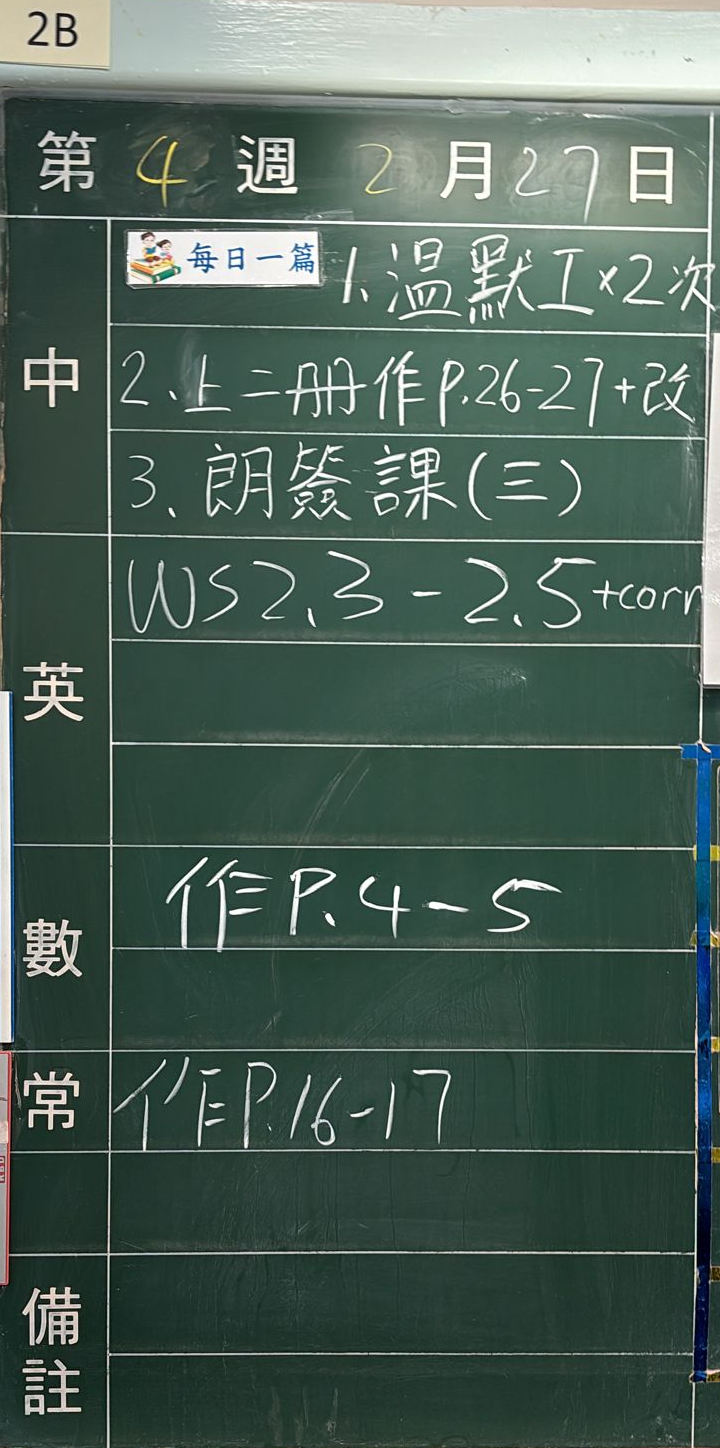 2B
第 4 週 2 月 27 日
中
每日一篇 1、溫默工×2次
2、上二册作P.26-27+改
3、朗簽課(三)
英
WS2.3-2.5+corr
數
作P.4-5
常
作P.16-17
備註